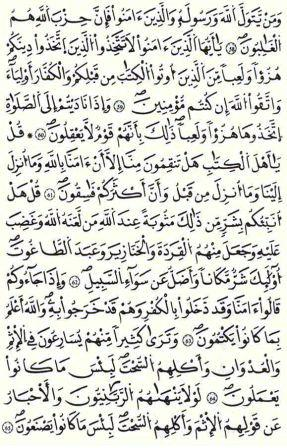 وَمَنْ يَّتَوَلَّ اَللَّهَ وَرَسُولَهُۥ وَالذِينَ ءَامَنُواْ فَإِنَّ حِزْبَ اَللَّهِ هُمُ
اُلْغَٰلِبُونَ يَٰأَيُّهَا اَلذِينَ ءَامَنُواْ لَا تَتَّخِذُواْ الذِينَ اَتَّخَذُواْ دِينَكُمْ
هُزُؤاً وَلَعِباً مِّنَ اَلذِينَ أُوتُواْ الْكِتَٰبَ مِن قَبْلِكُمْ وَالْكُفَّارَ أَوْلِيَآءَ
وَاتَّقُواْ اللَّهَ إِن كُنتُم مُّؤْمِنِينَ وَإِذَا نَادَيْتُمْ إِلَى اَلصَّلَوٰةِ
اِتَّخَذُوهَا هُزُؤاً وَلَعِباً ذَٰلِكَ بِأَنَّهُمْ قَوْمٌ لَّا يَعْقِلُونَ قُلْ
يَٰأَهْلَ اَلْكِتَٰبِ هَلْ تَنقِمُونَ مِنَّا إِلَّا أَنْ ءَامَنَّا بِاللَّهِ وَمَا أُنزِلَ
إِلَيْنَا وَمَا أُنزِلَ مِن قَبْلُ وَأَنَّ أَكْثَرَكُمْ فَٰسِقُونَ قُلْ هَلْ
أُنَبِّئُكُم بِشَرٍّ مِّن ذَٰلِكَ مَثُوبَةً عِندَ اَللَّهِ مَن لَّعَنَهُ اُللَّهُ وَغَضِبَ
عَلَيْهِ وَجَعَلَ مِنْهُمُ اُلْقِرَدَةَ وَالْخَنَازِيرَ وَعَبَدَ اَلطَّٰغُوتَ
أُوْلَٰئِكَ شَرٌّ مَّكَاناً وَأَضَلُّ عَن سَوَآءِ اِلسَّبِيلِ وَإِذَا جَآءُوكُمْ
قَالُواْ ءَامَنَّا وَقَد دَّخَلُواْ بِالْكُفْرِ وَهُمْ قَدْ خَرَجُواْ بِهِۦ وَاللَّهُ أَعْلَمُ
بِمَا كَانُواْ يَكْتُمُونَ وَتَرَىٰ كَثِيراً مِّنْهُمْ يُسَٰرِعُونَ فِى اِلْإِثْمِ
وَالْعُدْوَٰنِ وَأَكْلِهِمُ اُلسُّحْتَ لَبِئْسَ مَا كَانُواْ
يَعْمَلُونَ لَوْلَا يَنْهَىٰهُمُ اُلرَّبَّٰنِيُّونَ وَالْأَحْبَارُ
عَن قَوْلِهِمُ اُلْإِثْمَ وَأَكْلِهِمُ اُلسُّحْتَ لَبِئْسَ مَا كَانُواْ يَصْنَعُونَ